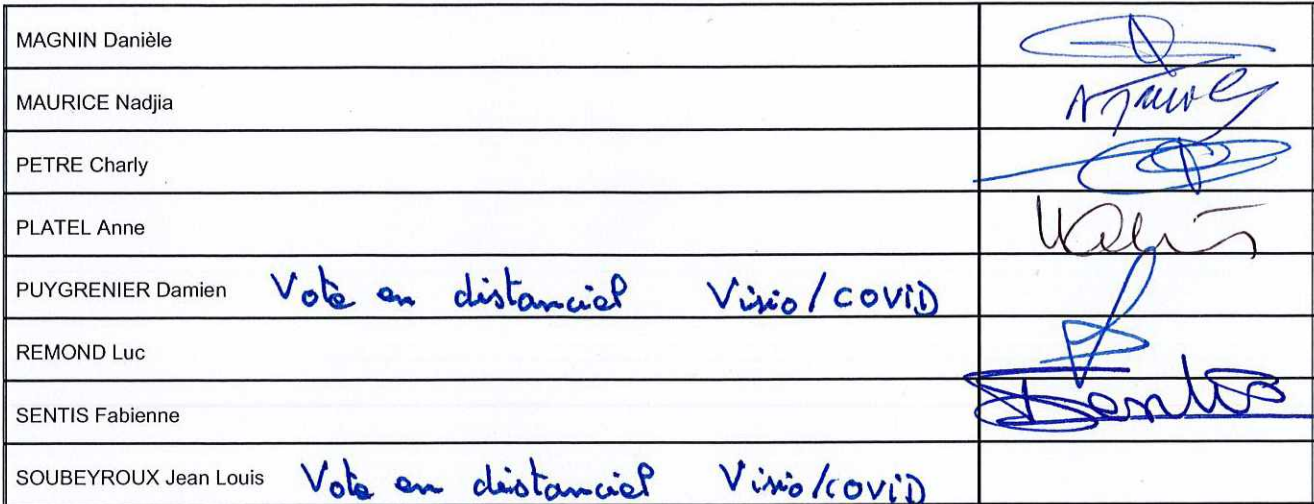 MAGNIN Danièle
MAURICE Nadjia
PETRE Charly
PLATEL Anne
PUYGRENIER Damien Vote en distanciel Visio/COVID
REMOND Luc
SENTIS Fabienne Sentis
SOUBEYROUX Jean Louis Vote en distanciel Visio/COVID